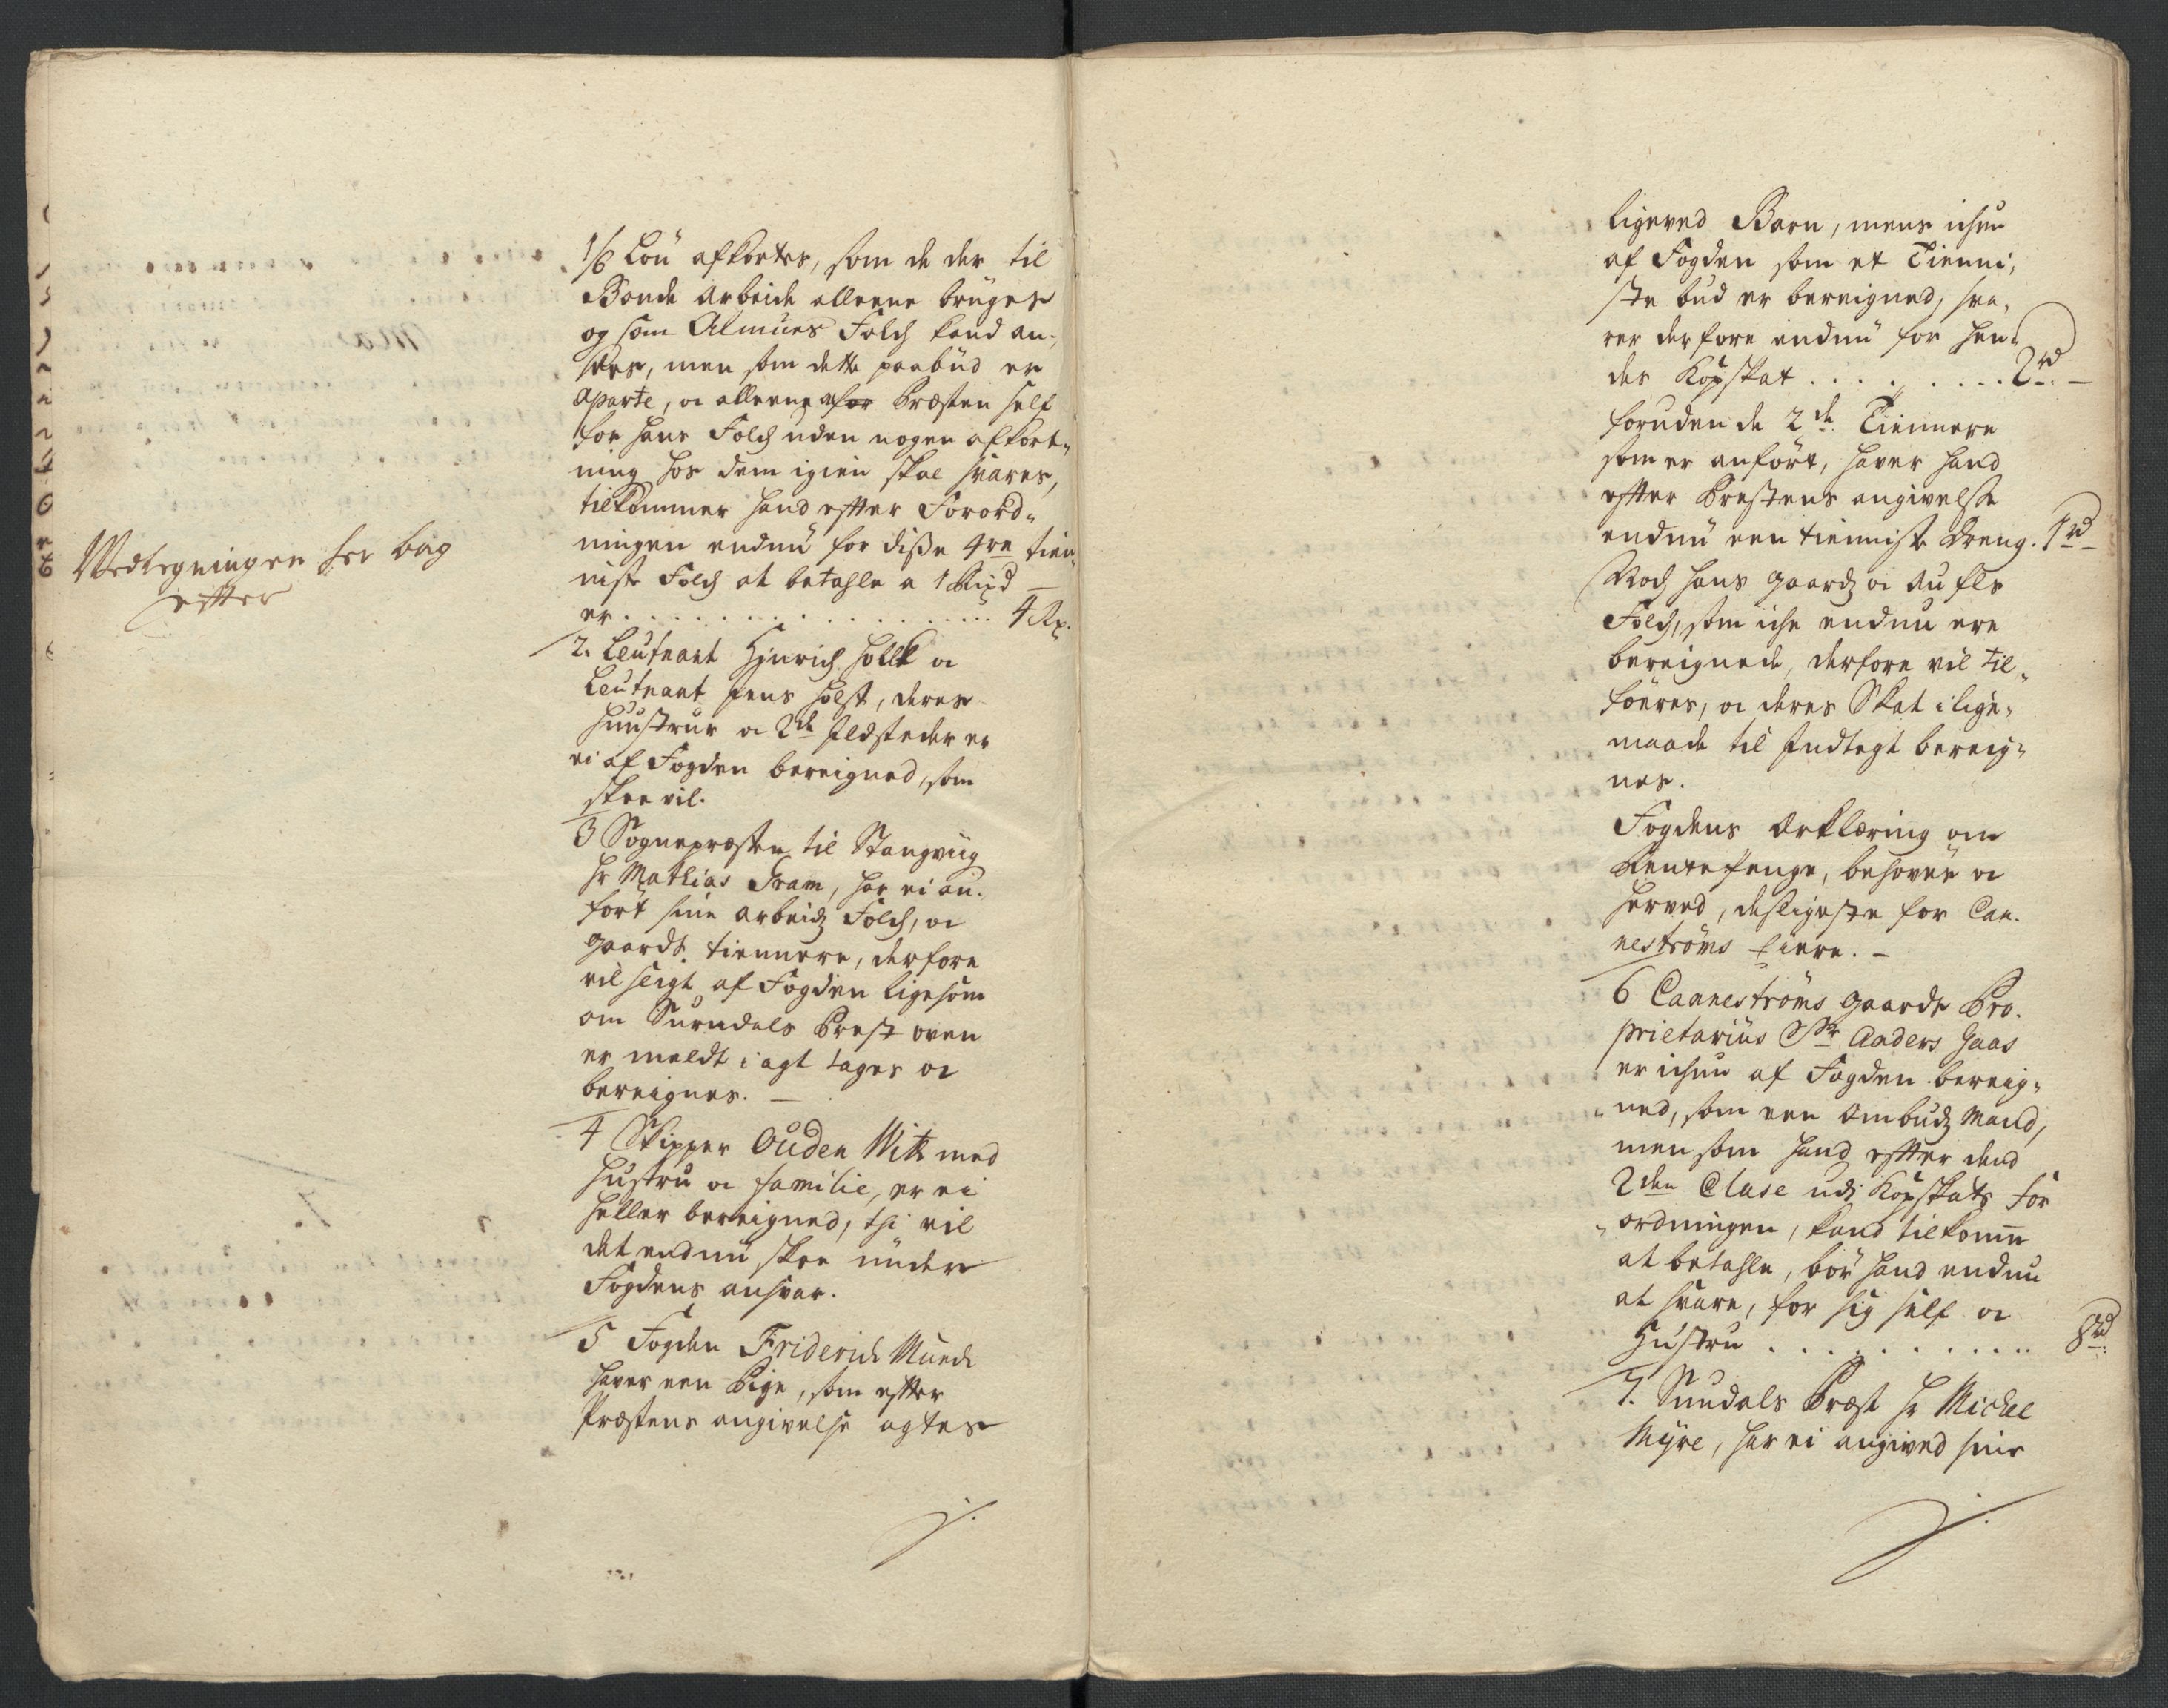 Vedtegningen her bag
efter
1/6 Løn afkortes, som de der til
Bonde arbeide alleene brüges
og som Almües Folch kand an-
sees, men som dette paabüd er
aparte, oc alleene af Præsten self
for hans Folch uden nogen afkort-
ning hos dem igien skal svares,
tilkommer hand efter Forord-
ningen endnü for disse 4re tien-
niste Folch at betahle a 1 Rixd
er . . . . . . . . . . 4 Rx.
2. Leutnant Hinrich Holck oc
Leutnant Jens Holst, deres
Huustruer oc 2de Ildsteder er
ei af Fogden bereigned, som
skee vil.
3 Sognepræsten til Stangviig
Hr Mathias Gram, har ei an-
fört sine arbeidz Folch, oc
gaardz tiennere, derfore
vil seigt af Fogden ligesom
om Surndals Prest oven
er meldt i agt tages oc
bereignes. —
4 Skipper Ouden Witz med
Hustru oc familie, er ei
heller bereigned, thi vil
det endnü skee ünder
Fogdens ansvar.
5 Fogden Friderich Munch
haver een Pige, som efter
Præstens angivelse agtes
ligeved Barn, mens ichun
af Fogden som et Tienni-
ste bud er bereigned, sva-
rer derfore endnü for hen-
des Kopskat . . . . . . . . 2rd —
foruden de 2de Tiennere
som er anfört, haver hand
efter Prestens angivelse
endnü een tienniste dreng. 1rd —
Noch hans gaardz oc aufls
Folch, som iche endnu ere
bereignede, derfore vil til-
föeres, oc deres Skat i lige-
maade til Indtegt bereig-
nes.
Fogdens Erklæring om
Rentepenge, behöves oc
herved, desligeste for Can-
neströms Eiere. —
6 Canneströms gaards Pro-
prietarius Sr Anders Haas
er ichun af Fogden bereig-
ned, som een Ombudz Mand,
men som hand efter dend
2den Clase udi Kopskats For
ordningen, kand tilkomme
at betahle, bör hand endnu
at svare, for sig self oc
Hüstru . . . . . . . . . . 8rd
7. Sundals Præst Hr Michel
Myre, har ei angived sine